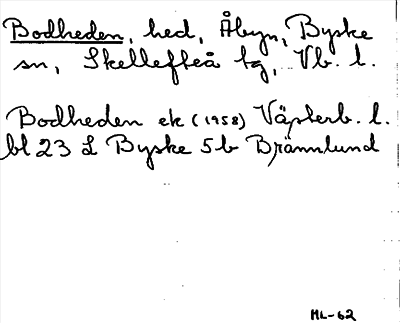 Bodheden, hed, Åbyn, Byske
sn, Skellefteå tg, Vb. l.
Bodheden ek (1958) Västerb. l.
bl 23 L Byske 5b Brännlund
ML-62